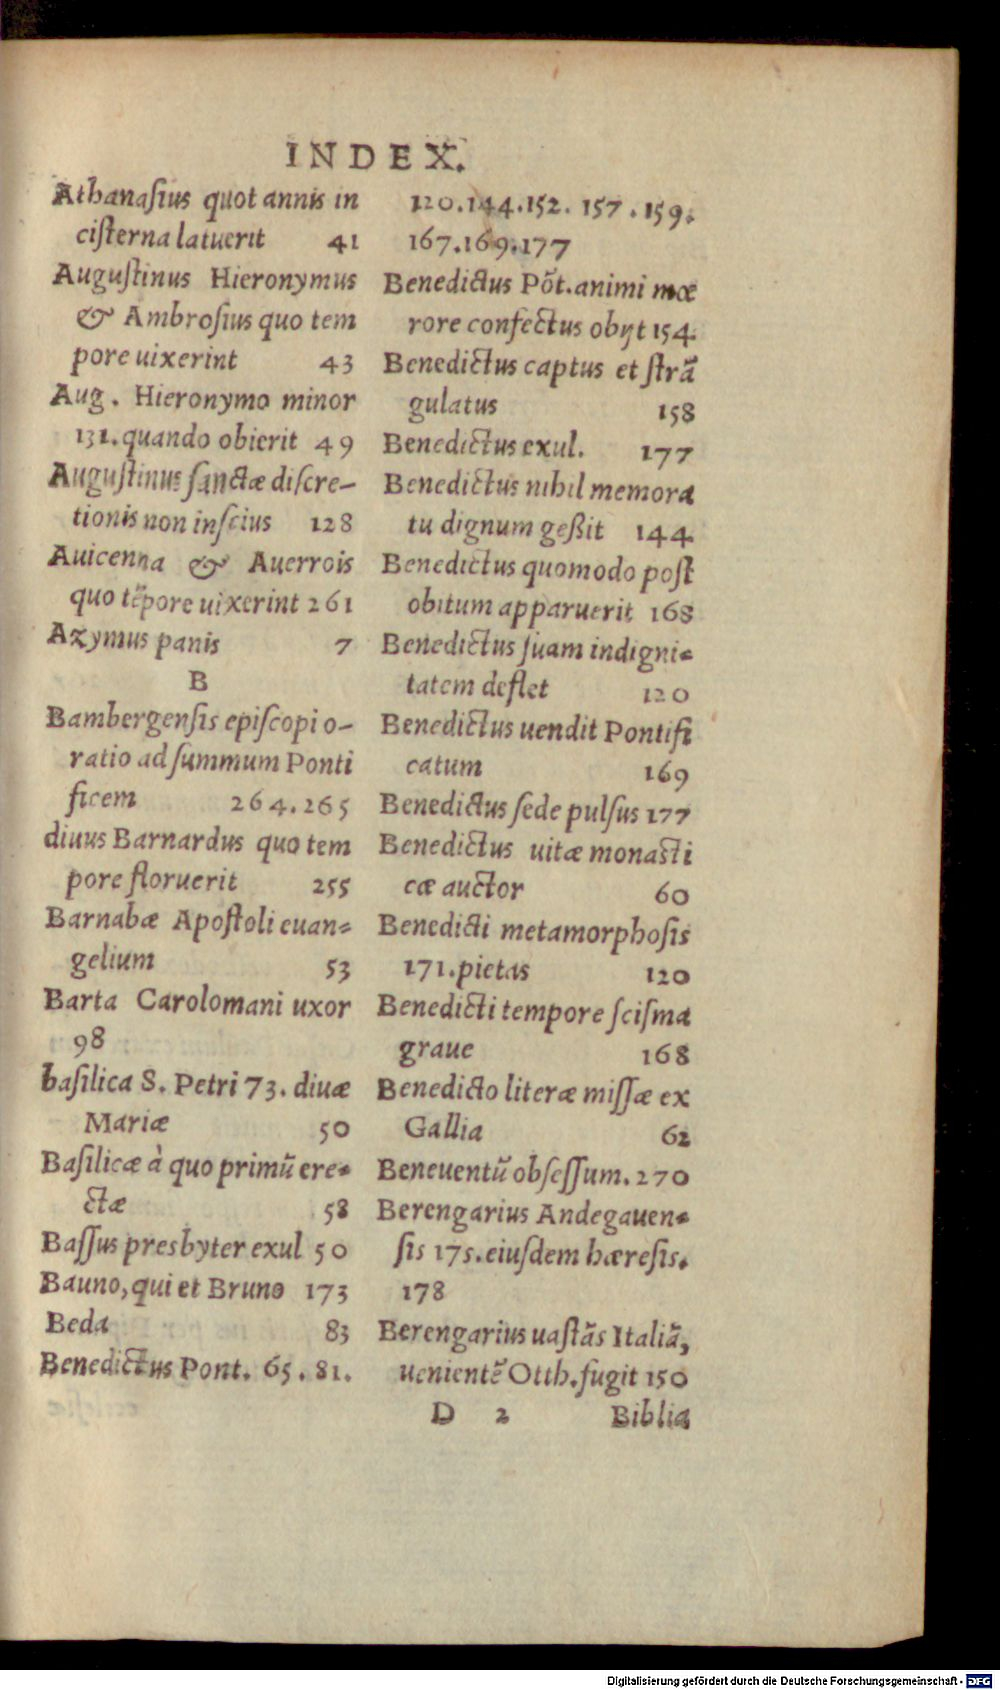 INDEX.
Athanaſius quot annis in
ciſterna latuerit 41
Auguſtinus Hieronymus
& Ambroſius quo tem
pore uixerint 43
Aug. Hieronymo minor
131. quando obierit 49
Auguſtinus ſanctæ diſcre-
tionis non inſcius 128
Auicenna & Auerrois
quo tēpore uixerint 261
Azymus panis 7
B
Bambergenſis epiſcopi o-
ratio ad ſummum Ponti
ficem 264.265
diuus Barnardus quo tem
pore floruerit 255
Barnabæ Apoſtoli euan-
gelium 53
Barta Carolomani uxor
98
baſilica S. Petri 73. diuæ
Mariæ 50
Baſilicæ à quo primũ ere-
ctæ 58
Baſſus presbyter exul 50
Bauno, qui et Bruno 173
Beda 83
Benedictus Pont. 65.81.
120.144.152.157.159.
167.169.177
Benedictus Põt. animi mœ
rore confectus obijt 154
Benedictus captus et ſtrã
gulatus 158
Benedictus exul. 177
Benedictus nihil memora
tu dignum geßit 144
Benedictus quomodo poſt
obitum apparuerit 168
Benedictus ſuam indigni-
tatem deflet 120
Benedictus uendit Pontifi
catum 169
Benedictus ſede pulſus 177
Benedictus uitæ monaſti
cæ auctor 60
Benedicti metamorphoſis
171. pietas 120
Benedicti tempore ſciſma
graue 168
Benedicto literæ miſſæ ex
Gallia 62
Beneuentũ obſeſſum. 270
Berengarius Andegauen-
ſis 175. eiuſdem hæreſis.
178
Berengarius uaſtãs Italiã,
uenientẽ Otth. fugit 150
D 2 Biblia
Digitalisierung gefördert durch die Deutsche Forschungsgemeinschaft - DFG